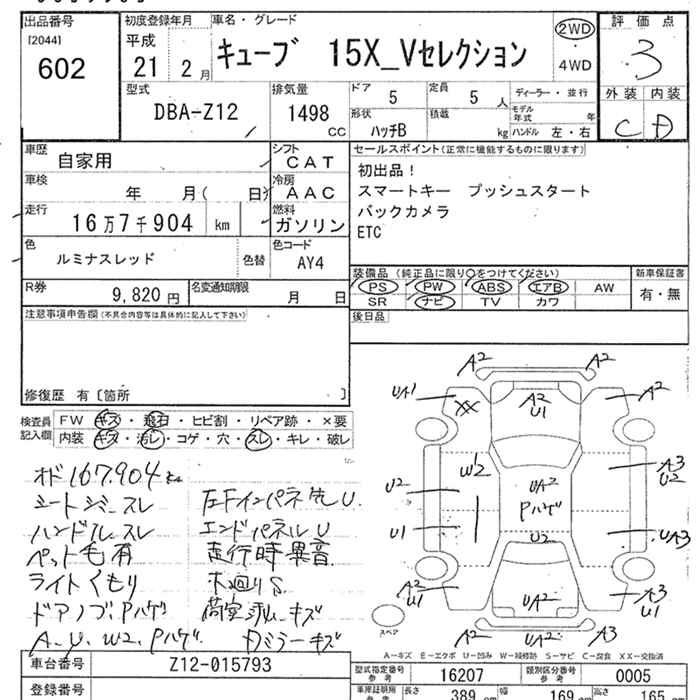 出品番号
[2044]
602
初度登録年月
平成
21 2 月
車名・グレード
キューブ 15X_Vセレクション
2WD
・
4WD
評価点
3
外装 内装
C D
型式
DBA-Z12
排気量
1498
CC
ドア
5
定員
5 人
形状
ハッチB
積載
kg
ディーラー・並行
モデル年式 年
ハンドル 左・右
車歴
自家用
シフト
CAT
車検
年 月( 日)
冷房
AAC
走行
16万7千904 km
燃料
ガソリン
色
ルミナスレッド
色替
色コード
AY4
R券
9,820 円
名変通知期限
月 日
セールスポイント(正常に機能するものに限ります)
初出品！
スマートキー プッシュスタート
バックカメラ
ETC
装備品 (純正品に限り○をつけてください)
PS PW ABS エアB AW
SR ナビ TV カワ
新車保証書
有・無
後日品
注意事項申告欄(不具合内容等は具体的に記入して下さい)
修復歴 有〔箇所 〕
検査員記入欄
FW キズ・飛石・ヒビ割・リペア跡・×要
内装 キズ・汚レ・コゲ・穴・スレ・キレ・破レ
オド 167.904 km
シートシミ、スレ
ハンドルスレ
ペット毛有
ライトくもり
ドアノブ、Pハゲ
A、U、W2、Pハゲ
左Fインパネ先U
エンドパネルU
走行時異音
水廻りS
Dミラーキズ
A2 A2
UA1 XX A2 U1 A2
W2
U2 UA2 Pハゲ A3 U2
U1 U2 UA3
A2 U1 UA2 A3 U1
スペア
A2 UA2 A3
A－キズ E－エクボ U－凹み W－補修跡 S－サビ C－腐食 XX－交換済
車台番号
Z12-015793
登録番号
型式指定番号
参考
16207
類別区分番号
参考
0005
車庫証明用
参考
長さ
389 cm
幅
169 cm
高さ
165 cm